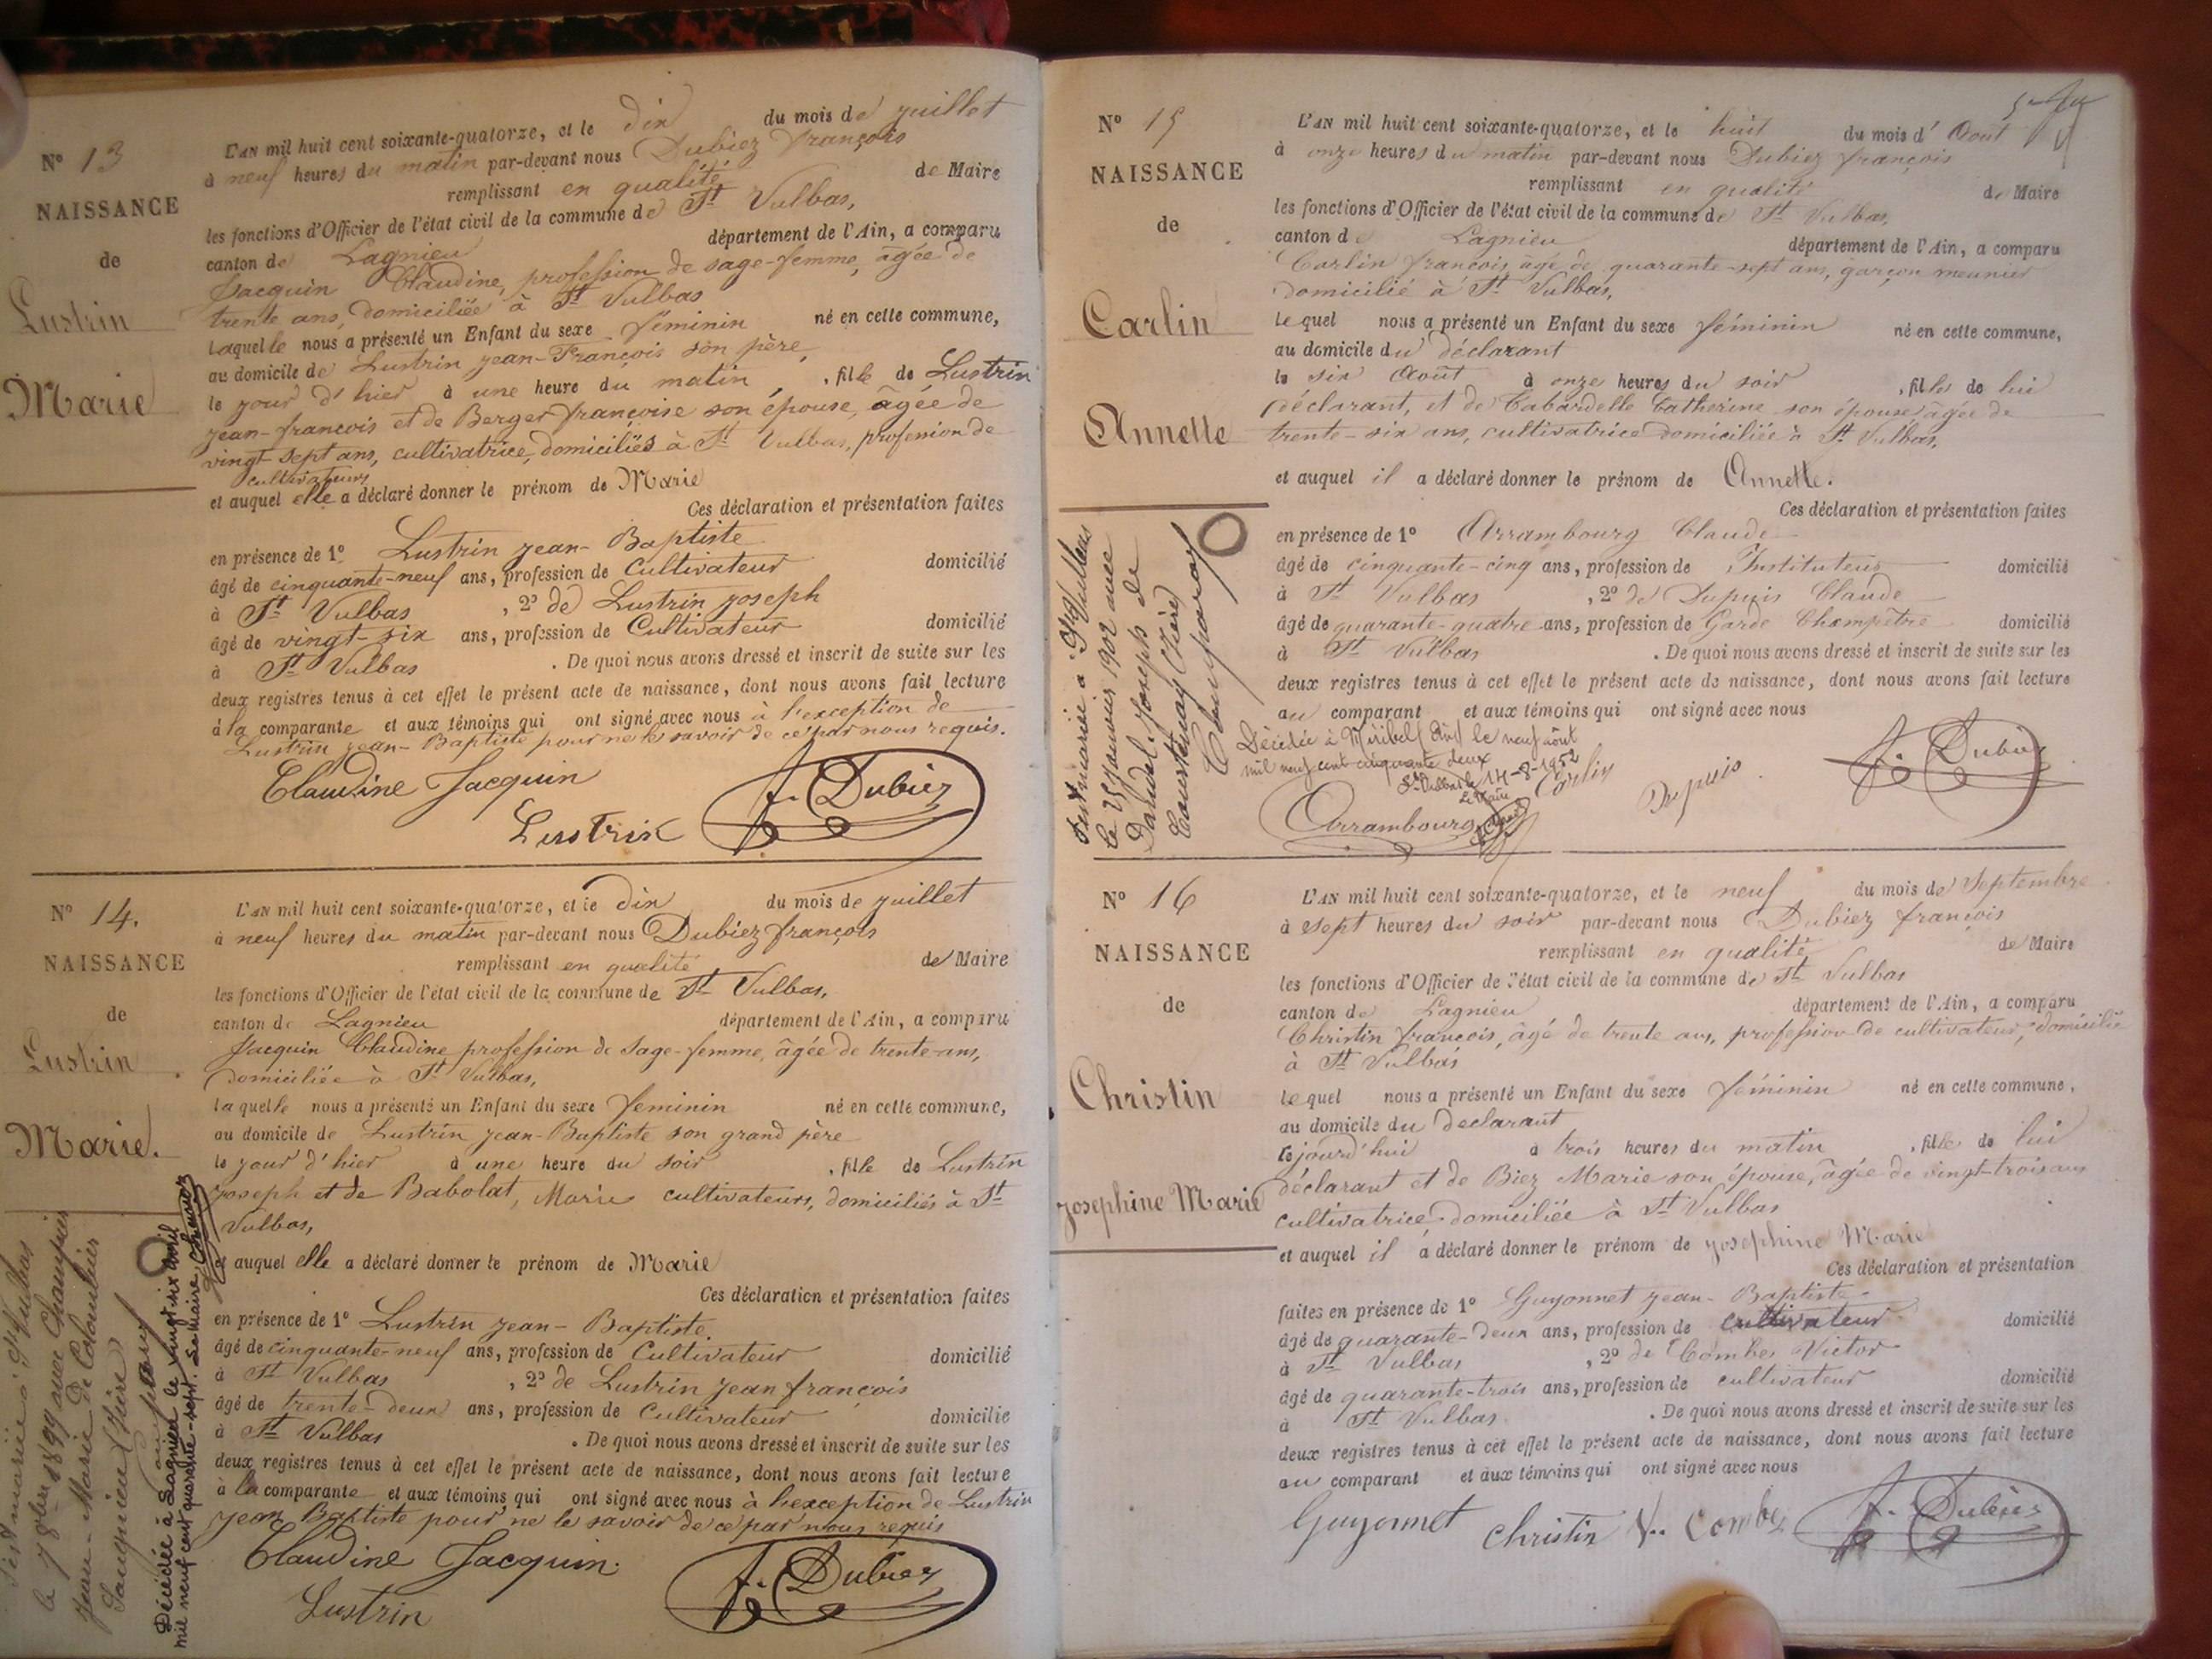 N° 13
NAISSANCE
de
Lustrin
Marie
L'AN mil huit cent soixante-quatorze, et le dix du mois de juillet
à neuf heures du matin par-devant nous Dubiez françois
remplissant en qualité de Maire
les fonctions d'Officier de l'état civil de la commune de St Vulbas,
canton de Lagnieu département de l'Ain, a comparu
Jacquin Claudine, profession de sage-femme, âgée de
trente ans, domiciliée à St Vulbas
laquelle nous a présenté un Enfant du sexe féminin né en cette commune,
au domicile de Lustrin jean-François son père,
le jour d'hier à une heure du matin, fille de Lustrin
jean-francois et de Berger françoise son épouse, âgée de
vingt-sept ans, cultivatrice, domiciliés à St Vulbas, profession de
cultivateurs
et auquel elle a déclaré donner le prénom de Marie
Ces déclaration et présentation faites
en présence de 1° Lustrin jean-Baptiste
âgé de cinquante-neuf ans, profession de Cultivateur domicilié
à St Vulbas, 2° de Lustrin joseph
âgé de vingt-six ans, profession de Cultivateur domicilié
à St Vulbas. De quoi nous avons dressé et inscrit de suite sur les
deux registres tenus à cet effet le présent acte de naissance, dont nous avons fait lecture
à la comparante et aux témoins qui ont signé avec nous à l'exception de
Lustrin jean-Baptiste pour ne le savoir de ce par nous requis.
Claudine Jacquin
Lustrin F. Dubiez
N° 14.
NAISSANCE
de
Lustrin
Marie.
L'AN mil huit cent soixante-quatorze, et le dix du mois de juillet
à neuf heures du matin par-devant nous Dubiez françois
remplissant en qualité de Maire
les fonctions d'Officier de l'état civil de la commune de St Vulbas,
canton de Lagnieu département de l'Ain, a comparu
Jacquin Claudine profession de sage-femme, âgée de trente-ans,
domiciliée à St Vulbas,
laquelle nous a présenté un Enfant du sexe feminin né en cette commune,
au domicile de Lustrin jean-Baptiste son grand père
le jour d'hier à une heure du soir, fille de Lustrin
joseph et de Babolat, Marie cultivateurs, domiciliés à St
Vulbas,
et auquel elle a déclaré donner le prénom de Marie
Ces déclaration et présentation faites
en présence de 1° Lustrin jean-Baptiste.
âgé de cinquante-neuf ans, profession de Cultivateur domicilié
à St Vulbas, 2° de Lustrin jean françois
âgé de trente-deux ans, profession de Cultivateur domicilié
à St Vulbas. De quoi nous avons dressé et inscrit de suite sur les
deux registres tenus à cet effet le présent acte de naissance, dont nous avons fait lecture
à la comparante et aux témoins qui ont signé avec nous à l'exception de Lustrin
jean Baptiste pour ne le savoir de ce par nous requis
Claudine Jacquin.
Lustrin F. Dubiez
S'est mariée à St Vulbas
le 7 8bre 1899 avec Champier
Jean-Marie de Colombier
Saugnieu (Isère)
Décédée à Lagnieu le vingt six avril
mil neuf cent quarante-sept. Le Maire
N° 15
NAISSANCE
de
Carlin
Annette
L'AN mil huit cent soixante-quatorze, et le huit du mois d'Aout
à onze heures du matin par-devant nous Dubiez françois
remplissant en qualité de Maire
les fonctions d'Officier de l'état civil de la commune de St Vulbas,
canton de Lagnieu département de l'Ain, a comparu
Carlin françois âgé de quarante-sept ans, garçon meunier
domicilié à St Vulbas,
lequel nous a présenté un Enfant du sexe féminin né en cette commune,
au domicile du déclarant
le six Aout à onze heures du soir, fille de lui
déclarant, et de Cabardelle Catherine son épouse âgée de
trente-six ans, cultivatrice domiciliée à St Vulbas,
et auquel il a déclaré donner le prénom de Annette.
Ces déclaration et présentation faites
en présence de 1° Arrambourg Claude
âgé de cinquante-cinq ans, profession de Instituteur domicilié
à St Vulbas, 2° de Dupuis Claude
âgé de quarante-quatre ans, profession de Garde Champêtre domicilié
à St Vulbas. De quoi nous avons dressé et inscrit de suite sur les
deux registres tenus à cet effet le présent acte de naissance, dont nous avons fait lecture
au comparant et aux témoins qui ont signé avec nous
Décédée à Miribel (Ain) le neuf août
mil neuf cent cinquante deux
St Vulbas le 14-8-1952
Le Maire
Carlin Dupuis F. Dubiez
Arrambourg
S'est mariée à St Vulbas
le 25 janvier 1902 avec
Joseph de
Courtenay (Isère)
N° 16
NAISSANCE
de
Christin
josephine Marie
L'AN mil huit cent soixante-quatorze, et le neuf du mois de Septembre
à sept heures du soir par-devant nous Dubiez françois
remplissant en qualité de Maire
les fonctions d'Officier de l'état civil de la commune de St Vulbas
canton de Lagnieu département de l'Ain, a comparu
Christin françois, âgé de trente ans, profession de cultivateur, domicilié
à St Vulbas
lequel nous a présenté un Enfant du sexe féminin né en cette commune,
au domicile du declarant
lejourd'hui à trois heures du matin, fille de lui
déclarant et de Biez Marie son épouse, âgée de vingt-trois ans
cultivatrice domiciliée à St Vulbas
et auquel il a déclaré donner le prénom de josephine Marie
Ces déclaration et présentation
faites en présence de 1° Guyonnet jean-Baptiste
âgé de quarante-deux ans, profession de cultivateur domicilié
à St Vulbas, 2° de Combes Victor
âgé de quarante-trois ans, profession de cultivateur domicilié
à St Vulbas. De quoi nous avons dressé et inscrit de suite sur les
deux registres tenus à cet effet le présent acte de naissance, dont nous avons fait lecture
au comparant et aux témoins qui ont signé avec nous
Guyonnet christin V. Combes F. Dubiez